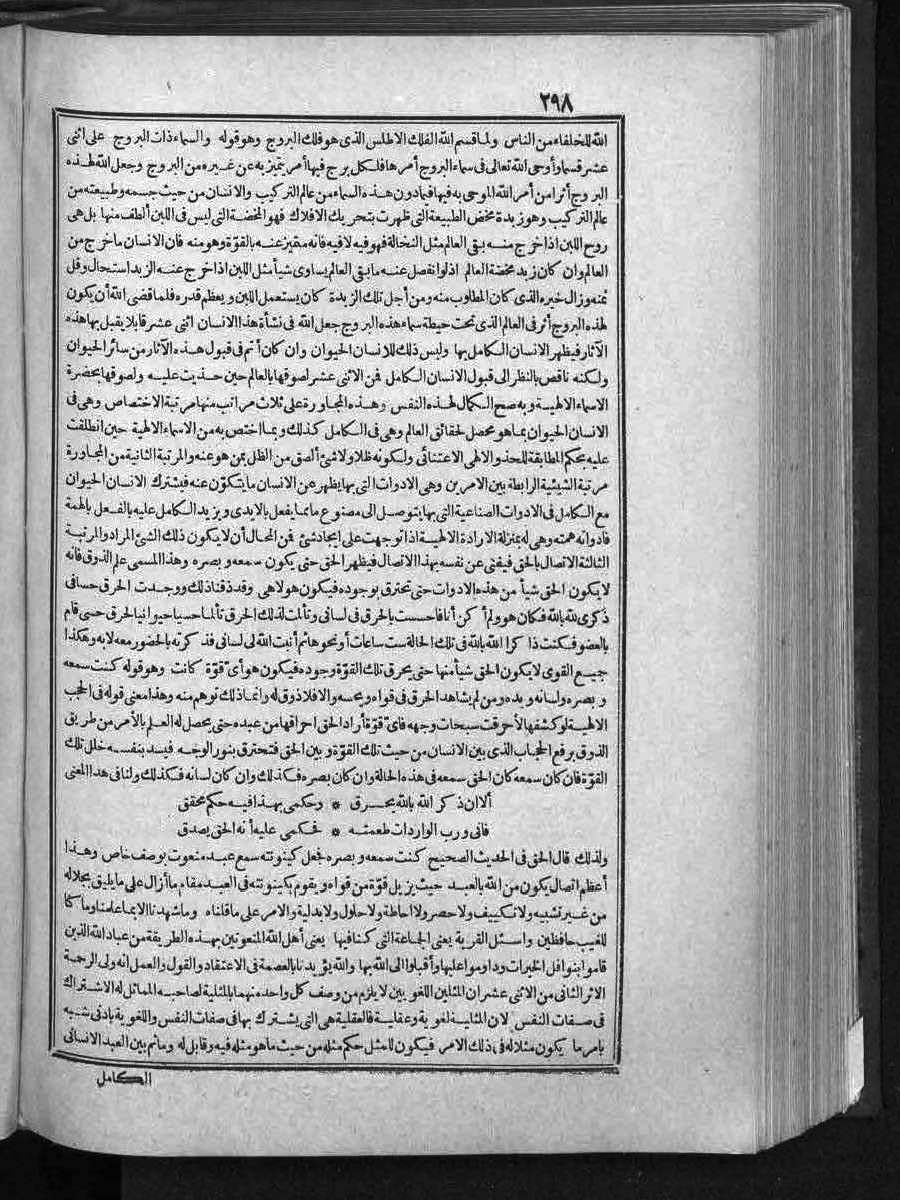 ٢٩٨
الله للخلفاء من الناس ولما قسم الله الفلك الاطلس الذى هو فلك البروج وهو قوله والسماء ذات البروج على اثنى
عشر قسما وأوحى الله تعالى فى سماء البروج أمرها فلكل برج فيها أمر يتميز به عن غيره من البروج وجعل الله لهذه
البروج أثرا من أمر الله الموحى به فيها فيما دون هذه السماء من عالم التركيب والانسان من حيث جسمه وطبيعته من
عالم التركيب وهو زبدة مخض الطبيعة التى ظهرت بتحريك الافلاك فهو المخضة التى ليس فى اللبن ألطف منها بل هى
روح اللبن اذا خرج منه بقى العالم مثل النخالة فهو فيه لا فيه فانه متميز عنه بالقوّة وهو منه فان الانسان ما خرج من
العالم وان كان زبد مخضة العالم اذلو انفصل عنه ما بقى العالم يساوى شيأ مثل اللبن اذا خرج عنه الزبد استحال وقل
ثمنه وزال خيره الذى كان المطلوب منه ومن أجل تلك الزبدة كان يستعمل اللبن ويعظم قدره فلما قضى الله أن يكون
لهذه البروج أثر فى العالم الذى تحت حيطة سماء هذه البروج جعل الله فى نشأة هذا الانسان اثنى عشر قابلا يقبل بها هذه
الآثار فيظهر الانسان الكامل بها وليس ذلك للانسان الحيوان وان كان أتم فى قبول هذه الآثار من سائر الحيوان
ولكنه ناقص بالنظر الى قبول الانسان الكامل فمن الاثنى عشر لصوقها بالعالم حين حذيت عليه ولصوقها بحضرة
الاسماء الالهية وبه صح الكمال لهذه النفس وهذه المجاورة على ثلاث مراتب منها مرتبة الاختصاص وهى فى
الانسان الحيوان بما هو محصل لحقائق العالم وهى فى الكامل كذلك وبما اختص به من الاسماء الالهية حين انطلقت
عليه بحكم المطابقة للحذو الالهى الاعتنائى ولكونه ظلا ولا شئ ألصق من الظل بمن هو عنه والمرتبة الثانية من المجاورة
مرتبة الشيئية الرابطة بين الامرين وهى الادوات التى بها يظهر عن الانسان ما يتكوّن عنه فيشترك الانسان الحيوان
مع الكامل فى الادوات الصناعية التى بها يتوصل الى مصنوع ما مما يفعل بالايدى ويزيد الكامل عليه بالفعل بالهمة
فادواته همته وهى له بمنزلة الارادة الالهية اذا توجهت على ايجاد شئ فمن المحال أن لا يكون ذلك الشئ المراد والمرتبة
الثالثة الاتصال بالحق فيفنى عن نفسه بهذا الاتصال فيظهر الحق حتى يكون سمعه وبصره وهذا المسمى علم الذوق فانه
لا يكون الحق شيأ من هذه الادوات حتى تحترق بوجوده فيكون هو لا هى وقد ذقنا ذلك ووجدت الحرق حسا فى
ذكرى لله بالله فكان هو ولم أكن أنا فاحسست بالحرق فى لسانى وتألمت لذلك الحرق تألما حسيا حيوانيا لحرق حسى قام
بالعضو فكنت ذاكرا الله بالله فى تلك الحالة ست ساعات أو نحوها ثم أنبت الله لى لسانى فذكرته بالحضور معه لا به وهكذا
جميع القوى لا يكون الحق شيأ منها حتى يحرق تلك القوّة وجوده فيكون هو أى قوّة كانت وهو قوله كنت سمعه
وبصره ولسانه ويده ومن لم يشاهد الحرق فى قواه ويحسه والا فلا ذوق له وانما ذلك توهم منه وهذا معنى قوله فى الحجب
الالهية لو كشفها لأحرقت سبحات وجهه فاىّ قوّة أراد الحق احراقها من عبده حتى يحصل له العلم بالأمر من طريق
الذوق برفع الحجاب الذى بين الانسان من حيث تلك القوّة وبين الحق فتحترق بنور الوجه فيسد بنفسه خلل تلك
القوّة فان كان سمعه كان الحق سمعه فى هذه الحالة وان كان بصره فكذلك وان كان لسانه فكذلك ولنا فى هذا المعنى
ألا ان ذكر الله بالله يحرق * وحكمى بهذا فيه حكم محقق
فانى ورب الواردات طعمته * فحكمى عليه أنه الحق يصدق
ولذلك قال الحق فى الحديث الصحيح كنت سمعه وبصره فجعل كينونته سمع عبد منعوت بوصف خاص وهذا
أعظم اتصال يكون من الله بالعبد حيث يزيل قوّة من قواه ويقوم بكينونته فى العبد مقام ما أزال على ما يليق بجلاله
من غير تشبيه ولا تكييف ولا حصر ولا احاطة ولا حلول ولا بدلية والامر على ما قلناه وما شهدنا الا بما علمنا وما كنا
للغيب حافظين واسئل القرية يعنى الجماعة التى كنا فيها يعنى أهل الله المنعوتين بهذه الطريقة من عباد الله الذين
قاموا بنوافل الخيرات وداوموا عليها وأقبلوا الى الله بها والله يؤيدنا بالعصمة فى الاعتقاد والقول والعمل انه ولى الرحمة
الاثر الثانى من الاثنى عشر ان المثلين اللغويين لا يلزم من وصف كل واحد منهما بالمثلية لصاحبه المماثل له الاشتراك
فى صفات النفس لان المثلية لغوية وعقلية فالعقلية هى التى يشترك بها فى صفات النفس واللغوية بادنى شبه
بامر ما يكون مثلا له فى ذلك الامر فيكون للمثل حكم مثله من حيث ما هو مثله فيه وقابل له وما ثم بين العبد الانسانى
الكامل